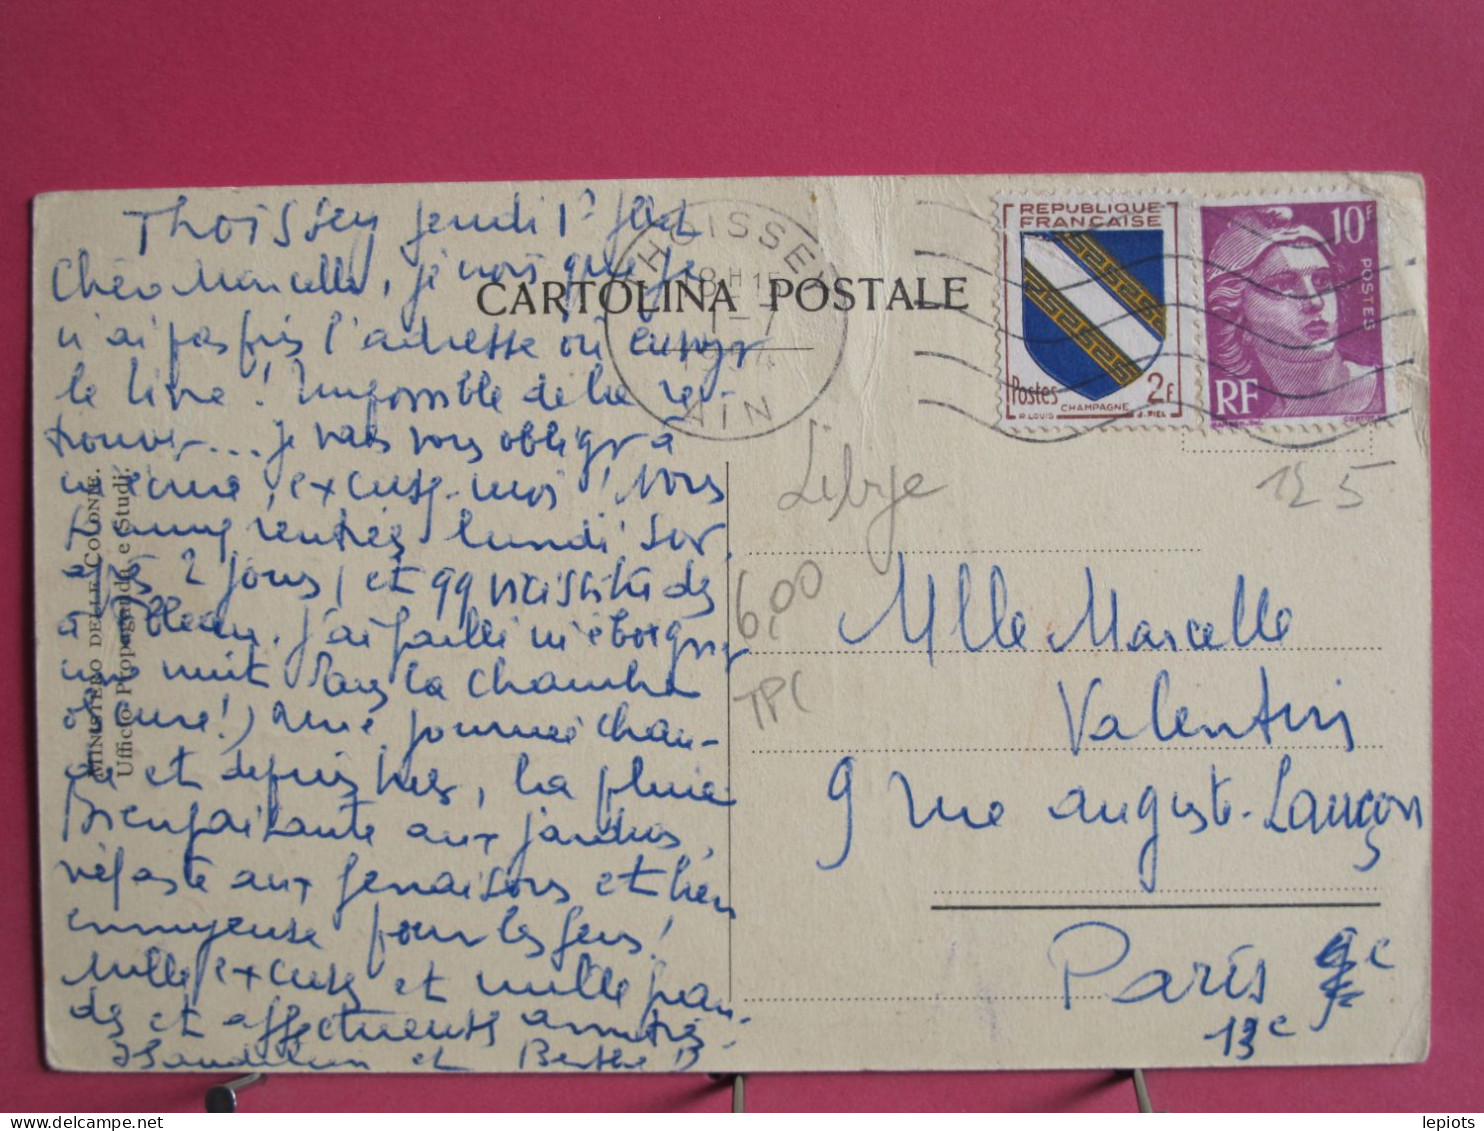 Thoissey jeudi 1er
Chère Marcelle, je vois que je
n'ai pas pris l'adresse où envoyer
le livre ! Impossible de le re-
trouver... je vais vous obliger à
m'écrire, excusez-moi ! Nous
sommes rentrées lundi soir,
après 2 jours, et qq visites de
J'ai failli m'éborgner
une nuit dans la chambre
obscure !) Une journée chau-
de et depuis hier, la pluie
Bienfaisante aux jardins,
néfaste aux fenaisons et bien
ennuyeuse pour les gens !
Mille excuses et mille gran-
des et affectueuses amitiés
et Berthe B
CARTOLINA POSTALE
MINISTERO DELLE COLONIE.
Ufficio Propaganda e Studi.
THOISSEY
18 H 15
1-7
1954
AIN
REPUBLIQUE
FRANÇAISE
Postes 2F
CHAMPAGNE
R. LOUIS J. PIEL
10F
POSTES
RF
Libye
125
6,00
TPC
Mlle Marcelle
Valentin
9 rue auguste-Lançon
Paris
13e
lepiots